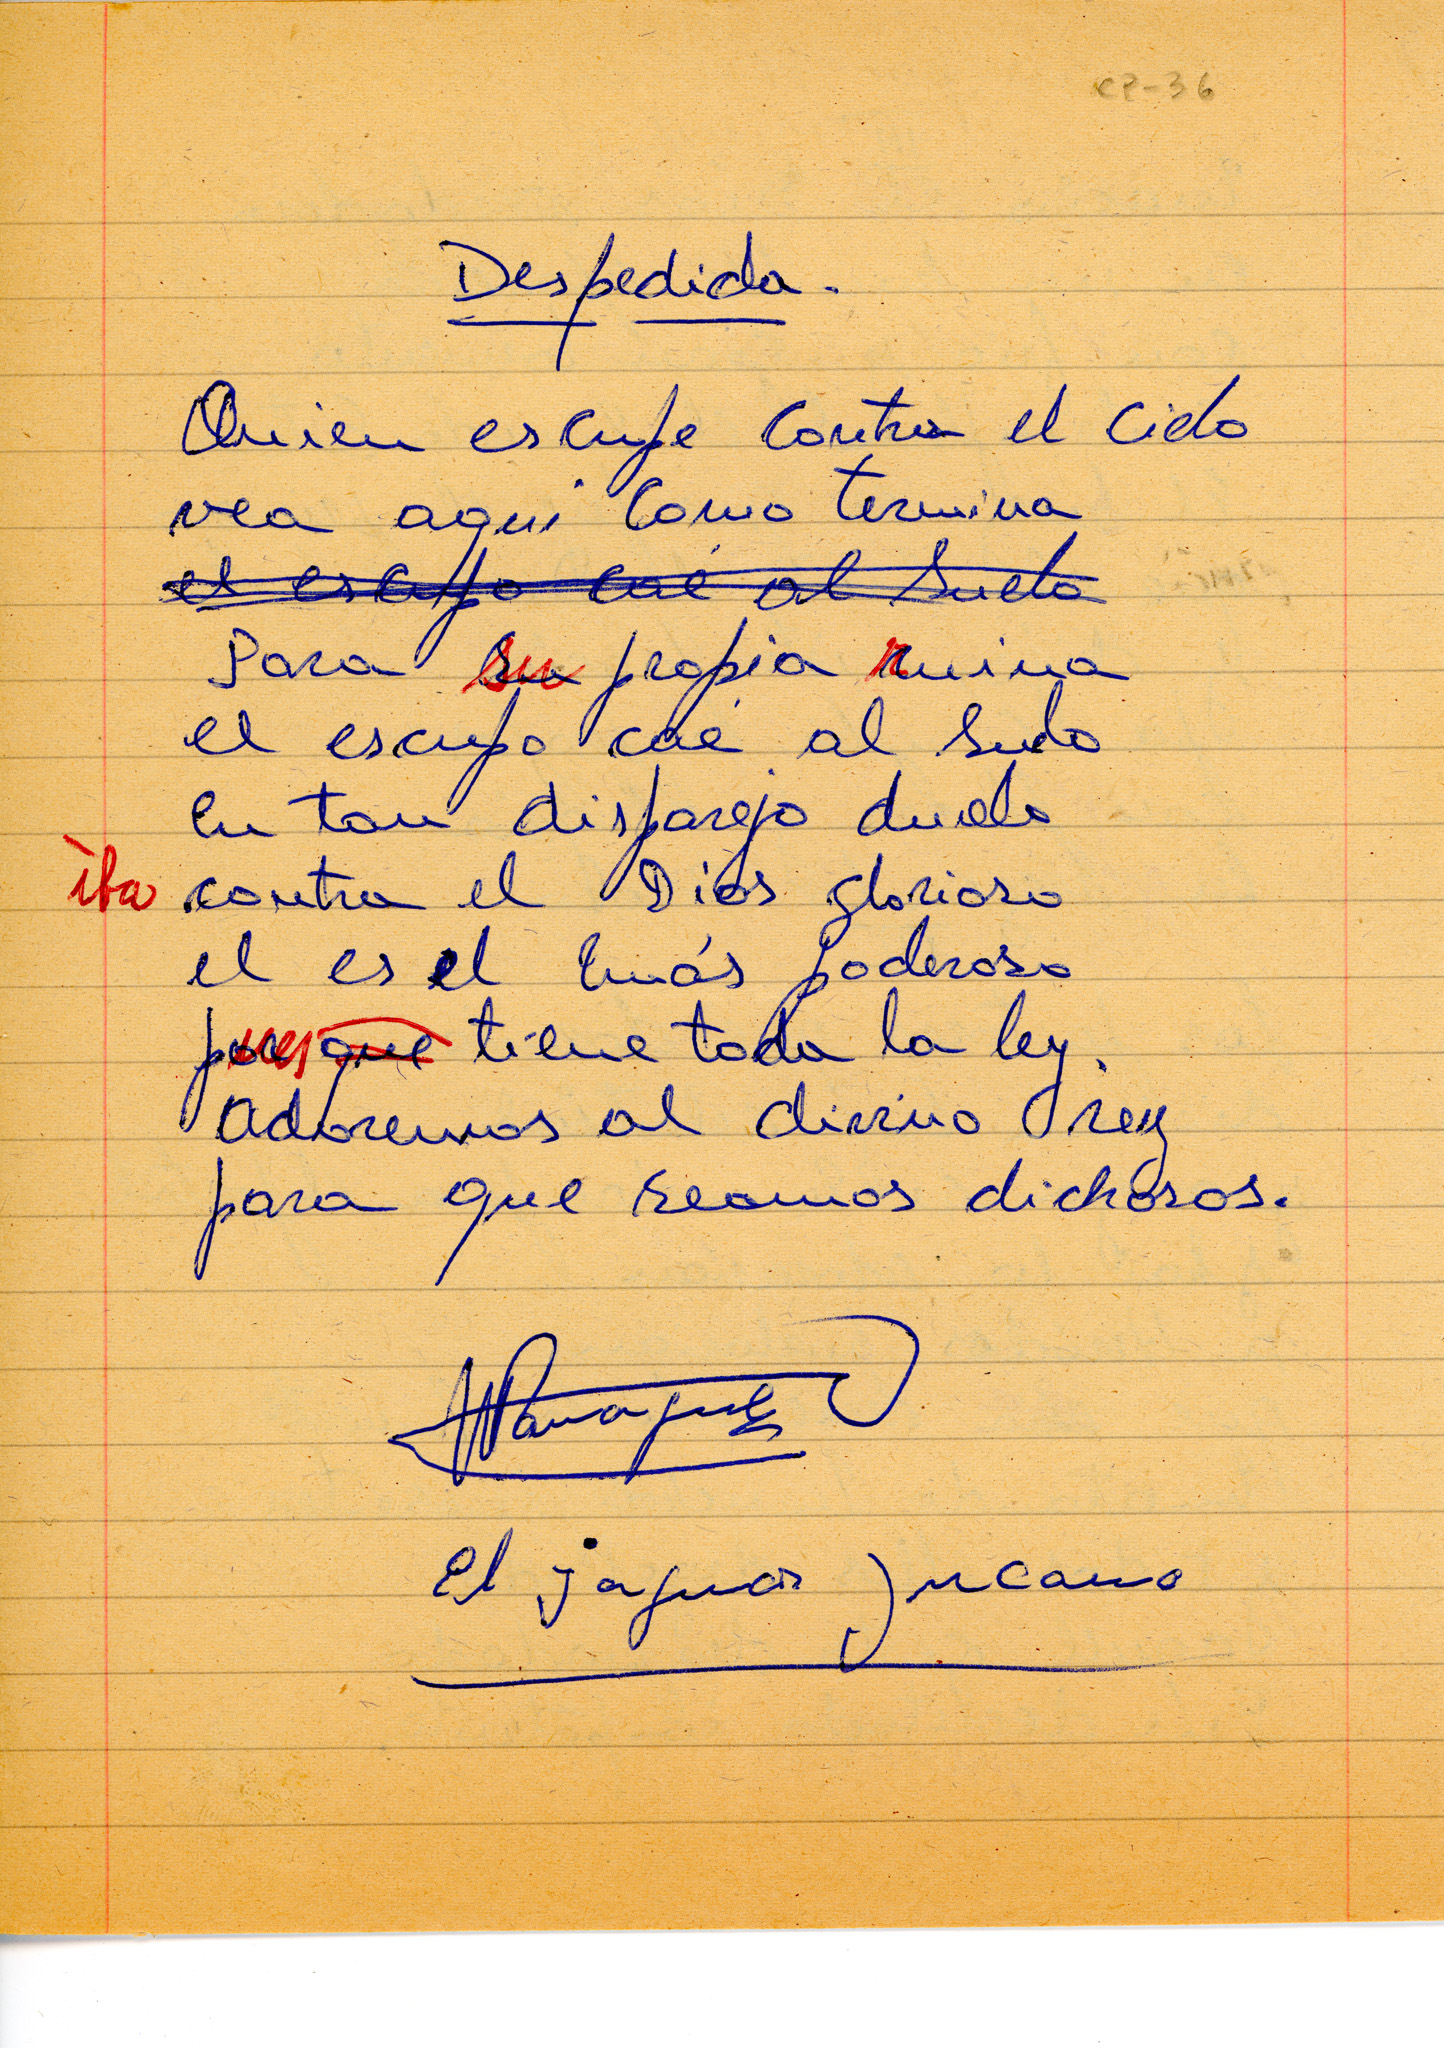 CP-36
Despedida.
Quien escupe contra el cielo
vea aqui como termina
el escupo caé al suelo
Para su propia ruina
el escupo caé al suelo
en tan disparejo duelo
iba contra el Dios glorioso
el es el más poderoso
pues que tiene toda la ley.
Adoremos al divino rey
para que seamos dichosos.
El jaguar yucano